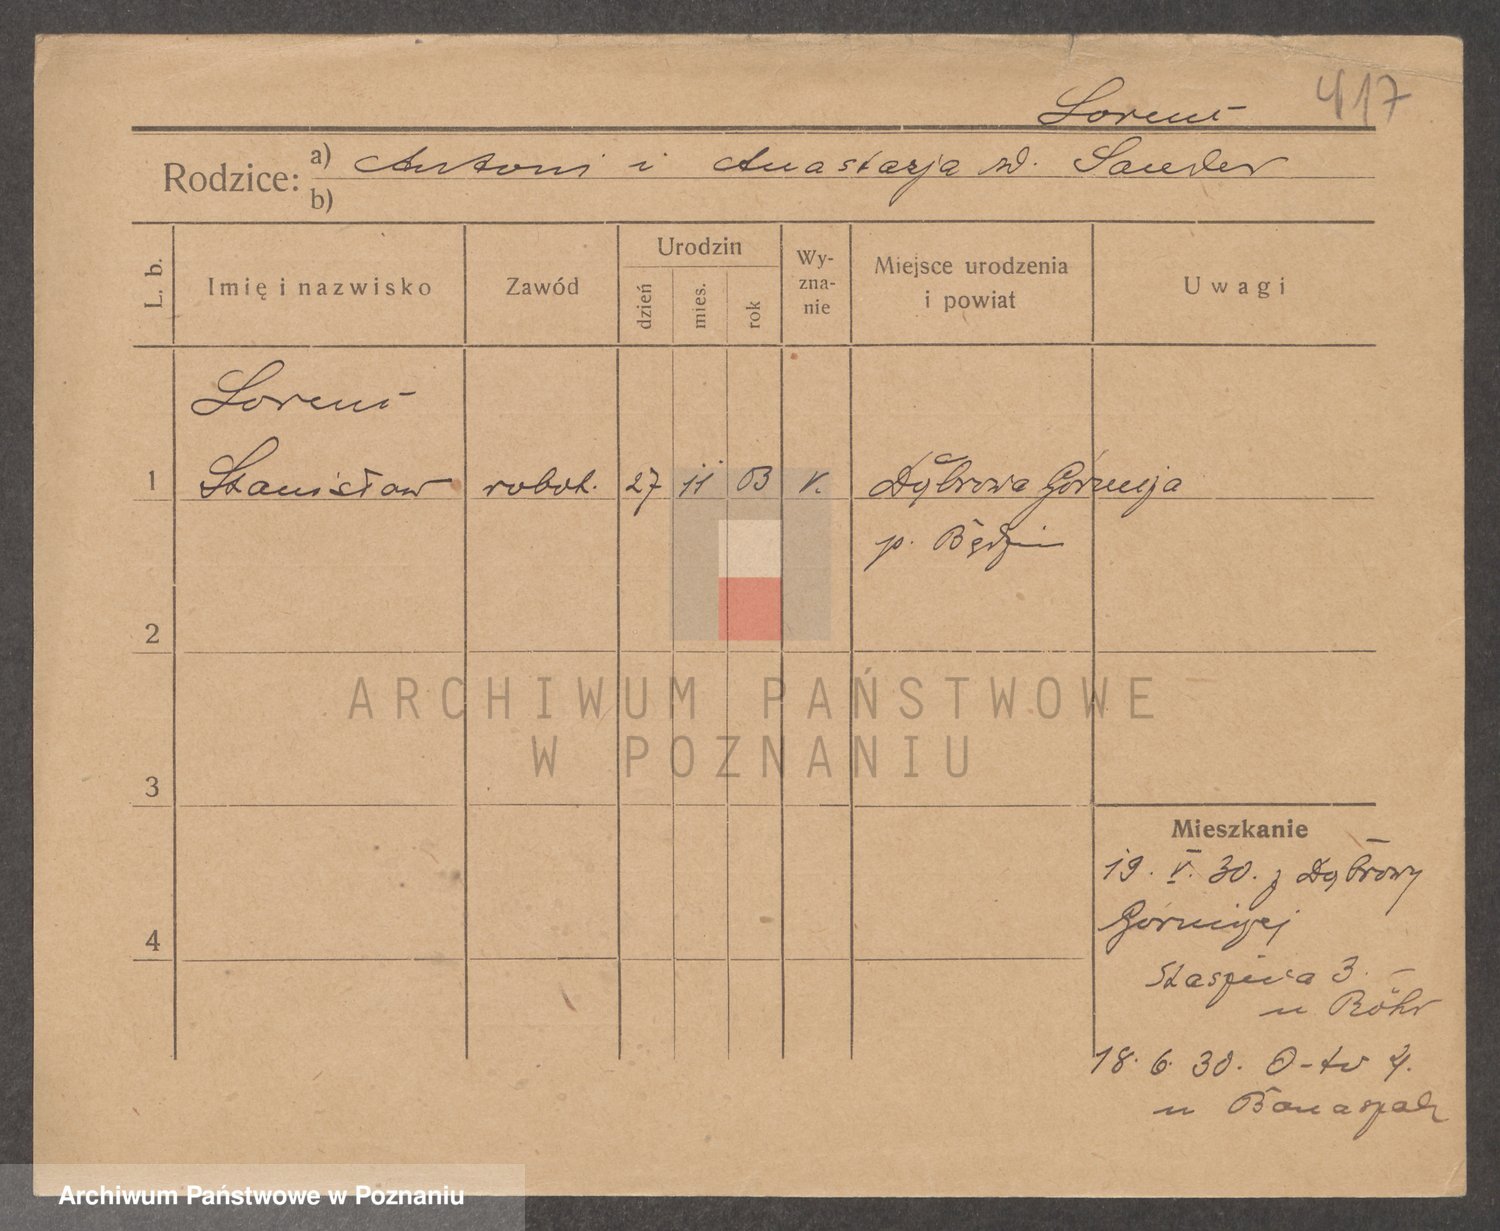 417
Lorent
Rodzice: a) Antoni i Anastazja zd. Sander
b)
L. b. Imię i nazwisko Zawód Urodzin dzień mies. rok Wyznanie Miejsce urodzenia i powiat Uwagi
Lorent
1 Stanisław robot. 27 11 03 r. Dąbrowa Górnicza
p. Będzin
2
ARCHIWUM PAŃSTWOWE
W POZNANIU
3
Mieszkanie
19. V. 30. z Dąbrowy
Górniczej
4
Staszica 3. –
u Röhr
18. 6. 30. O-tw 4.
u
Archiwum Państwowe w Poznaniu